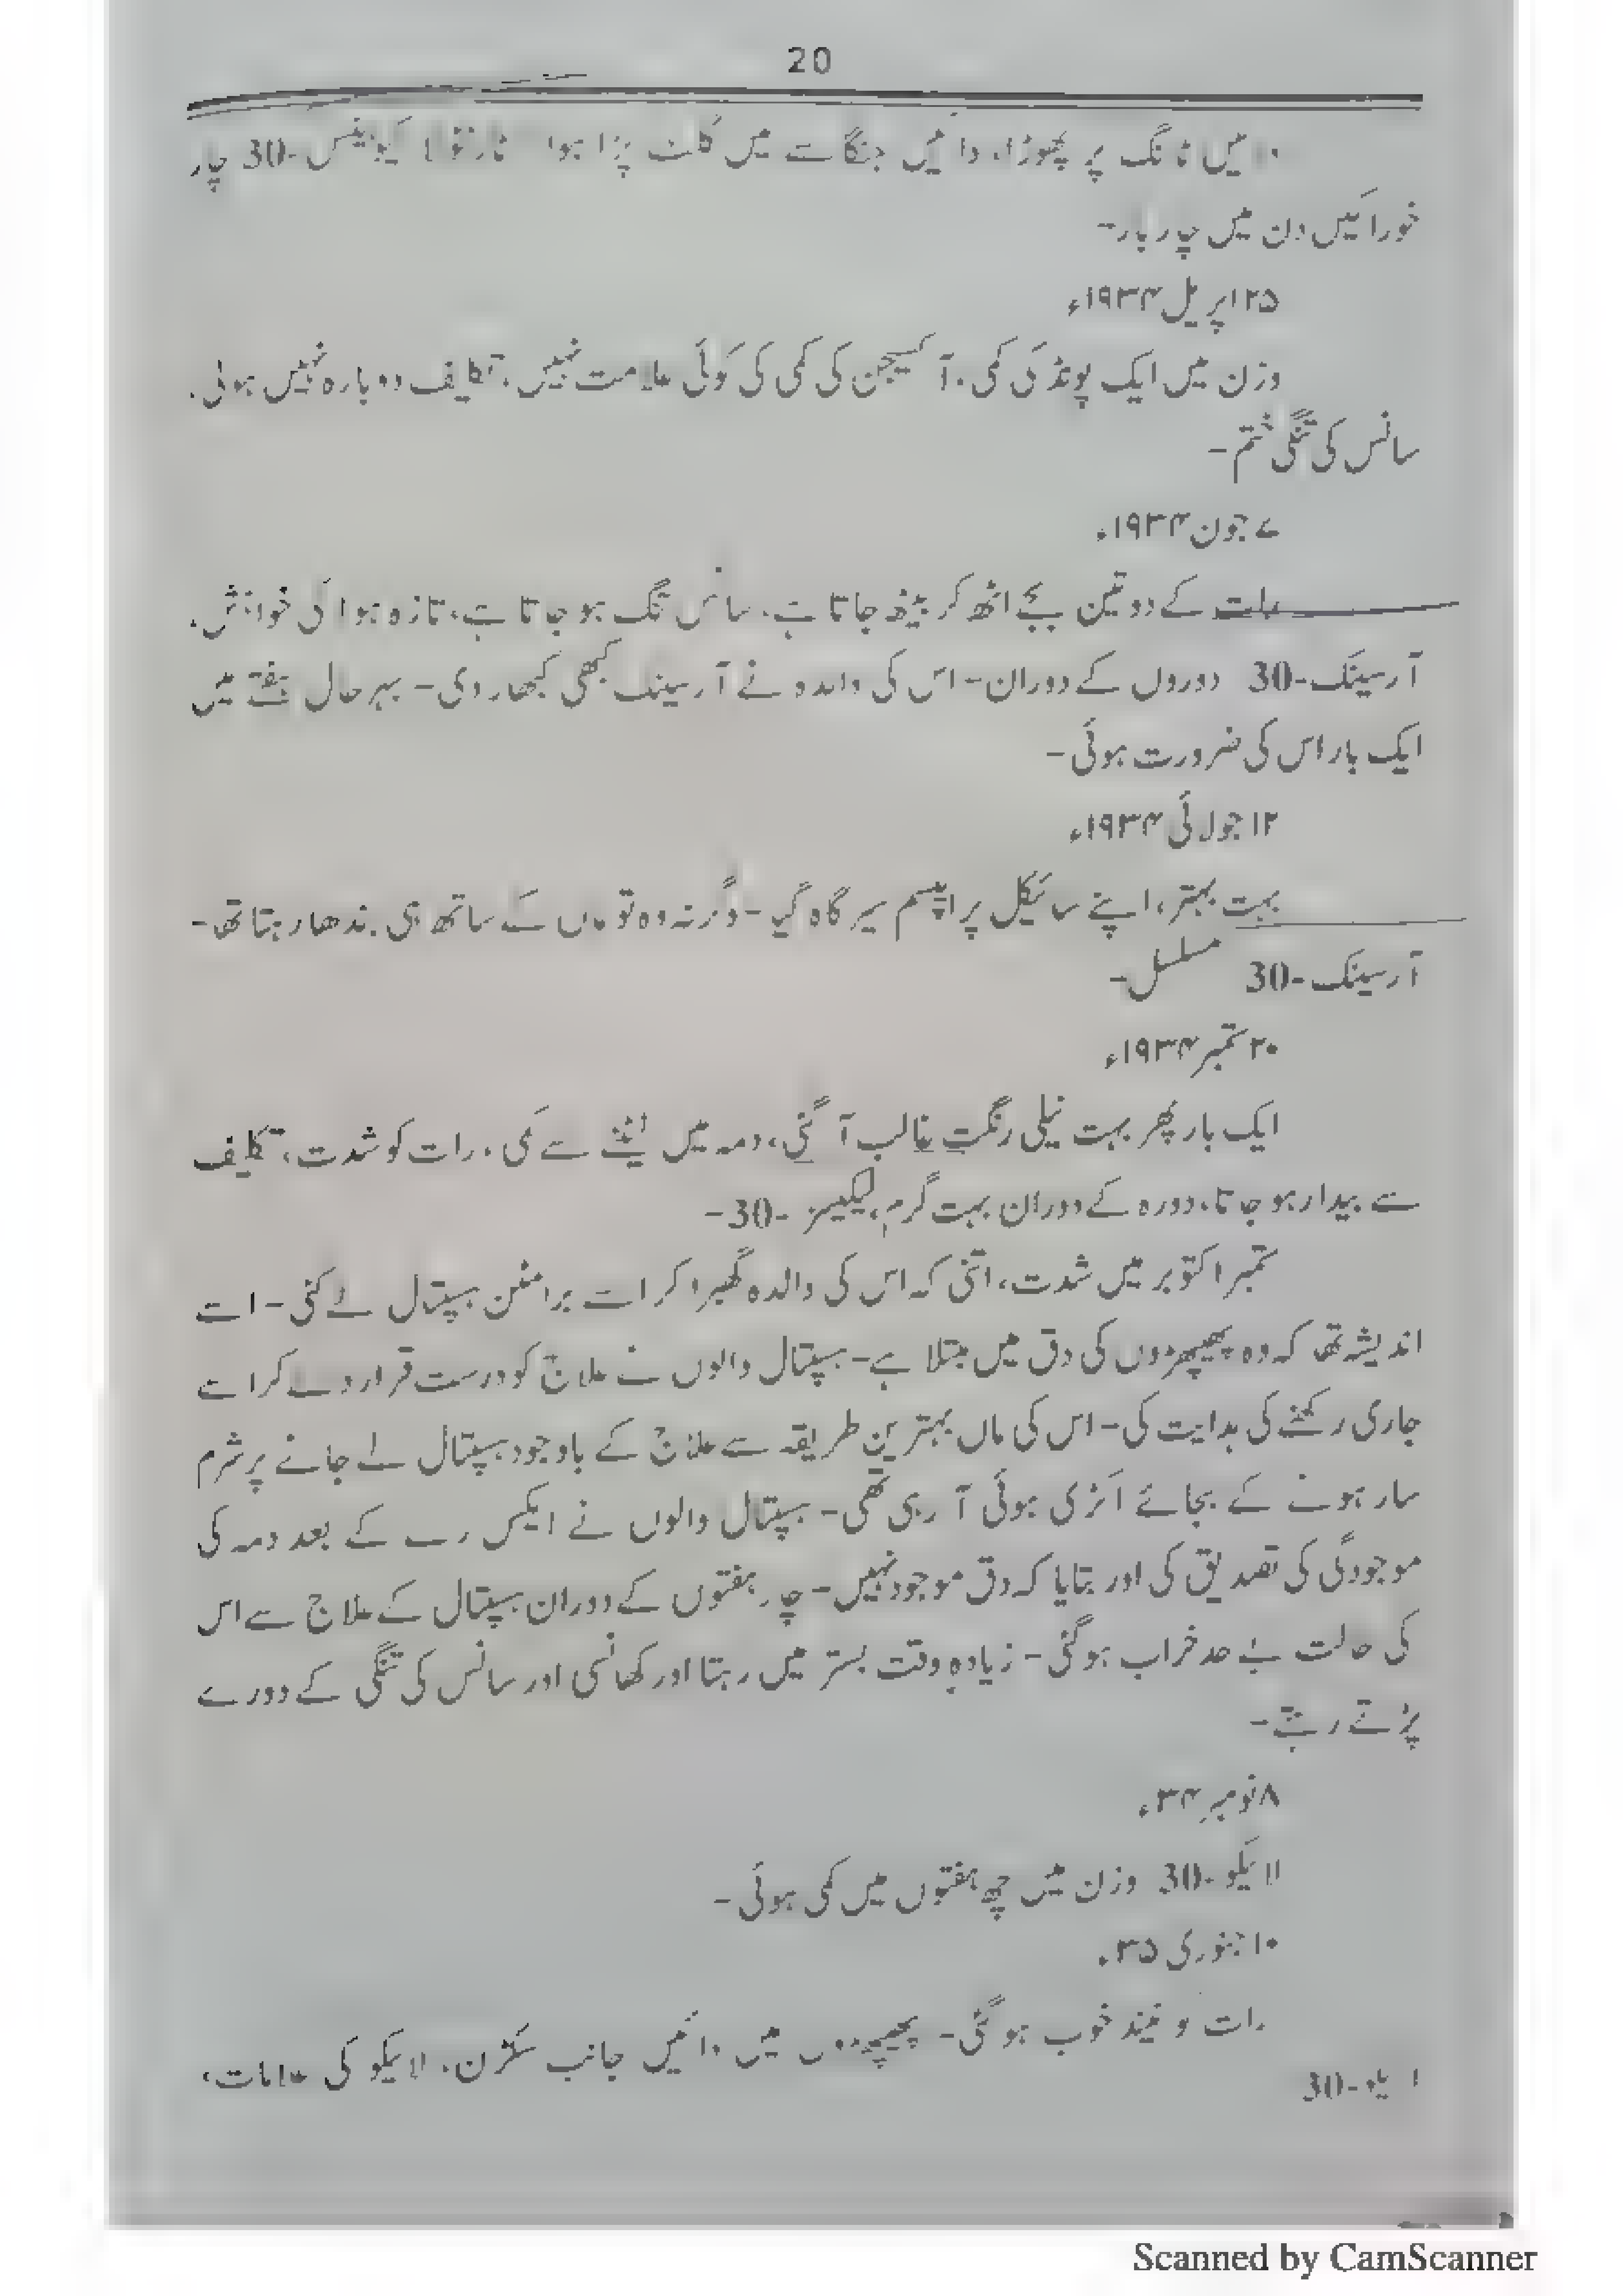 20
ٹانگ پر پھوڑا، دائیں جنگاسے میں گلٹ پڑا ہوا 30- چار
خوراکیں دن میں چار بار-
۲۵ اپریل ۱۹۳۴ء
وزن میں ایک پونڈ کی کمی، آکسیجن کی کمی کی کوئی علامت نہیں، تکلیف دوبارہ نہیں ہوئی،
سانس کی تنگی ختم-
۷ جون ۱۹۳۴ء
رات کے دو تین بجے اٹھ کر بیٹھ جاتا ہے، سانس تنگ ہو جاتا ہے، تازہ ہوا کی خواہش،
آرسینک-30 دوروں کے دوران- اس کی والدہ نے آرسینک کبھی کبھار دی- بہر حال ہفتے میں
ایک بار اس کی ضرورت ہوئی-
۱۲ جولائی ۱۹۳۴ء
بہت بہتر، اپنے سائیکل پر اپسم سیر گاہ گیا- وگرنہ وہ تو ماں کے ساتھ ہی بندھا رہتا تھا-
آرسینک-30 مسلسل-
۲۰ ستمبر ۱۹۳۴ء
ایک بار پھر بہت نیلی رنگت غالب آ گئی، دمہ میں لیٹنے سے کمی، رات کو شدت، تکلیف
سے بیدار ہو جاتا، دورہ کے دوران بہت گرم، لیکیسز -30-
ستمبر اکتوبر میں شدت، اتنی کہ اس کی والدہ گھبرا کر اسے برامٹن ہسپتال لے گئی- اسے
اندیشہ تھا کہ وہ پھیپھڑوں کی دق میں مبتلا ہے- ہسپتال والوں نے علاج کو درست قرار دے کر اسے
جاری رکھنے کی ہدایت کی- اس کی ماں بہترین طریقہ سے علاج کے باوجود ہسپتال لے جانے پر شرم
سار ہونے کے بجائے اکڑی ہوئی آ رہی تھی- ہسپتال والوں نے ایکس رے کے بعد دمہ کی
موجودگی کی تصدیق کی اور بتایا کہ دق موجود نہیں- چار ہفتوں کے دوران ہسپتال کے علاج سے اس
کی حالت بے حد خراب ہو گئی- زیادہ وقت بستر میں رہتا اور کھانسی اور سانس کی تنگی کے دورے
پڑتے رہے-
۸ نومبر ۳۴ء
لائیکو-30 وزن میں چھ ہفتوں میں کمی ہوئی-
۱۰ جنوری ۳۵ء
رات و نیند خوب ہو گئی- پھیپھڑوں میں دائیں جانب سکڑن، لائیکو کی علامات،
30-
Scanned by CamScanner